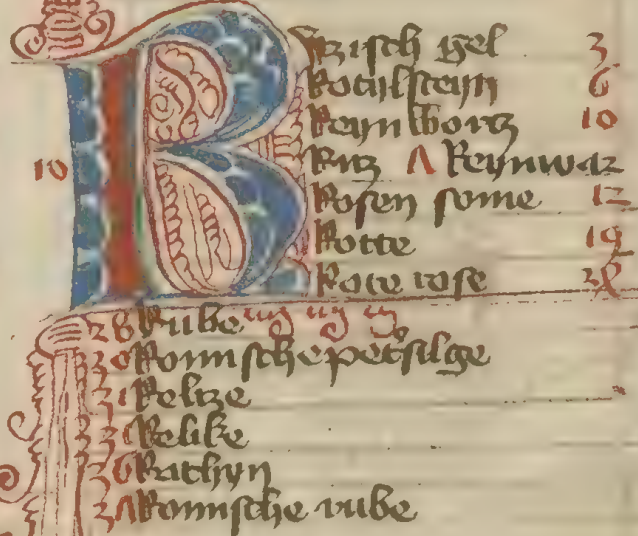 Rzisch gel 3
Rotilsteyn 6
Reynworcz 10
Ritz Λ Reynwaz
Rosen some 12
Rotte 19
Rote rose 28
28 Rube
30 Romische petersilge
31 Reltze
31 Relike
36 Rathyn
3Λ Romische rube